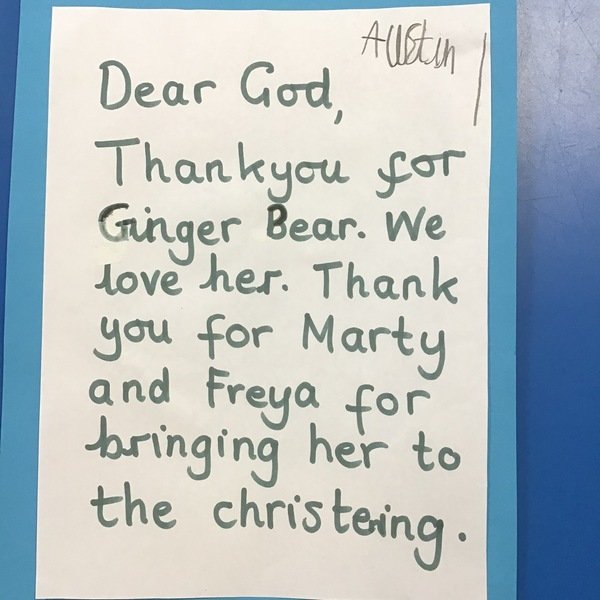 Austin
Dear God,
Thankyou for
Ginger Bear. We
love her. Thank
you for Marty
and Freya for
bringing her to
the christeing.